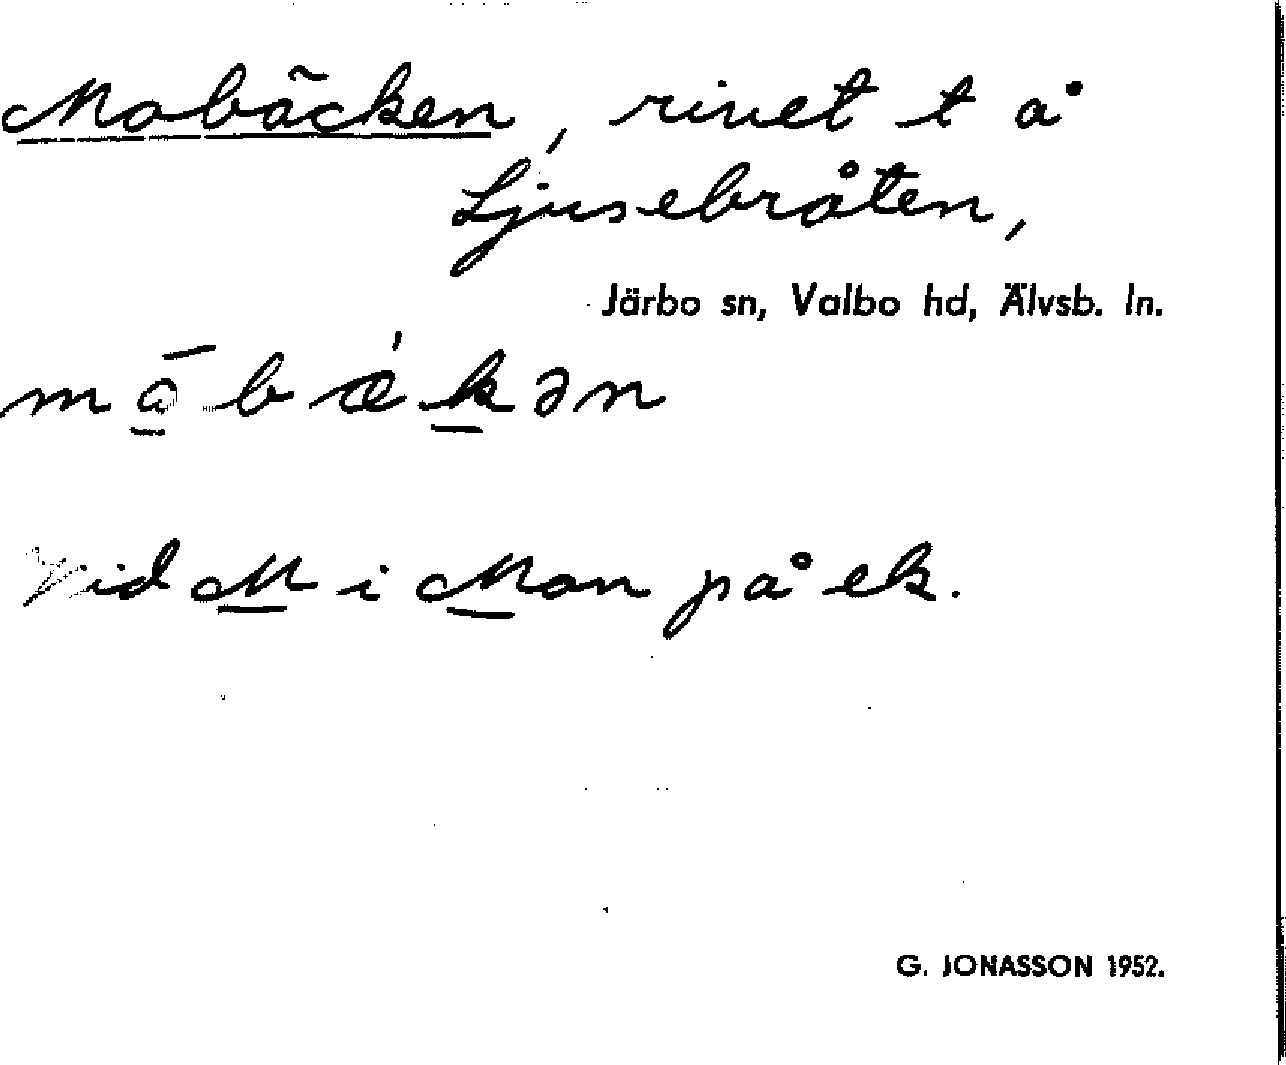 Mobäcken, rivet t å
Ljusebråten,
Järbo sn, Valbo hd, Älvsb. ln.
må̄bæ̀kən
Vid M i Mon på ek.
G. JONASSON 1952.